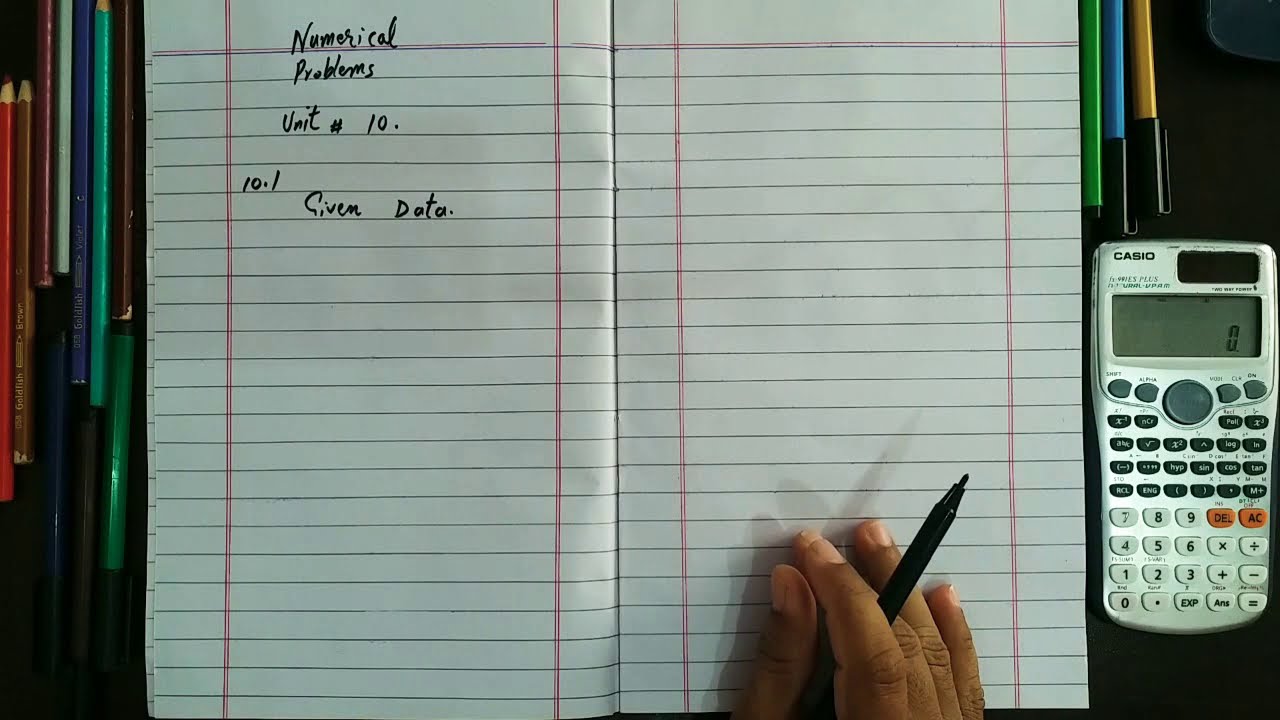 Numerical
Problems
Unit # 10.
10.1
Given Data.
CASIO
fx-991ES PLUS
NATURAL-V.P.A.M.
TWO WAY POWER
0.
SHIFT
ALPHA
MODE CLR ON
hyp sin cos tan
RCL ENG ( ) , M+
7 8 9 DEL AC
4 5 6 × ÷
1 2 3 + −
0 . EXP Ans =
OSB Goldfish Brown
OSB Goldfish Violet